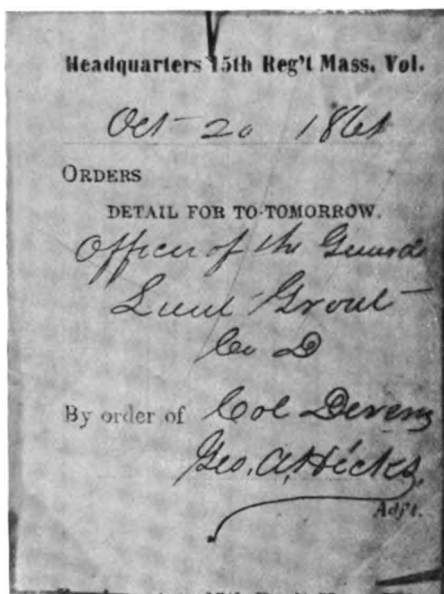 Headquarters 15th Reg't Mass. Vol.
Oct 20 1861
ORDERS
DETAIL FOR TO-TOMORROW.
Officer of the Guard
Lieut Grout
Co D
By order of Col Devens
Geo. A. Hicks.
Adj't.